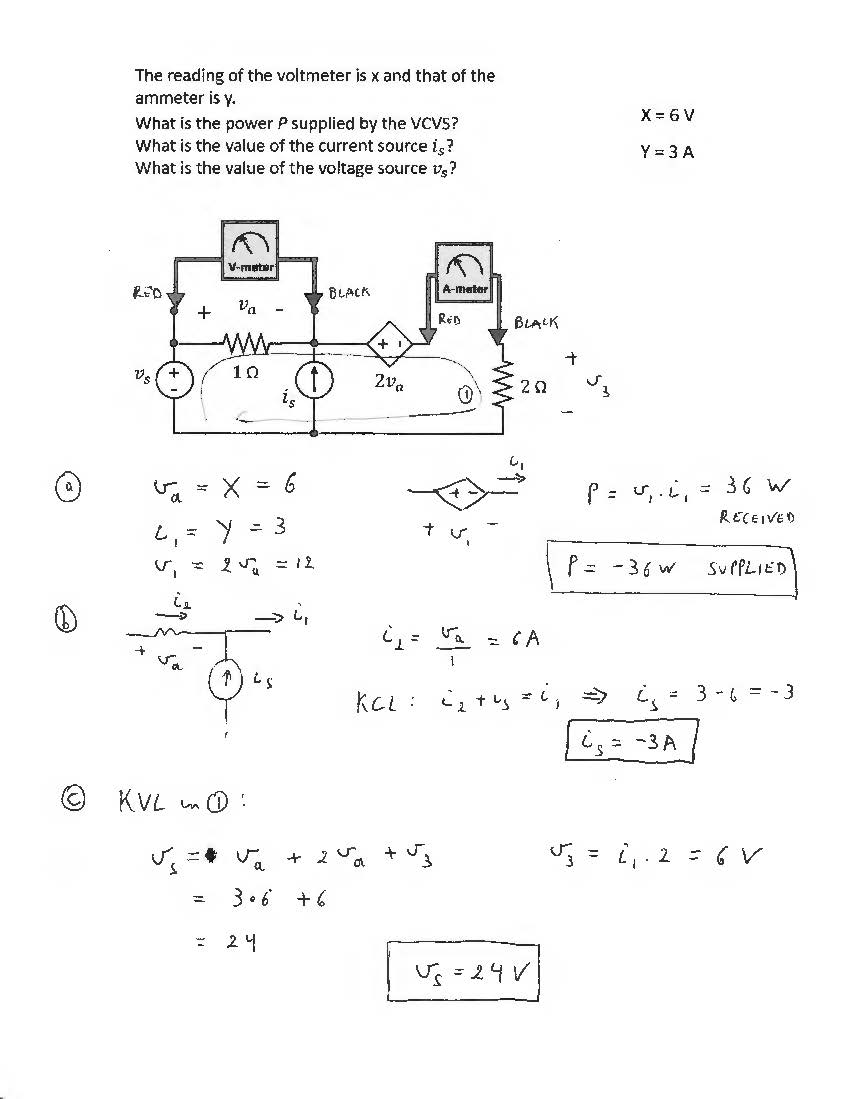 The reading of the voltmeter is x and that of the
ammeter is y.
What is the power P supplied by the VCVS?
What is the value of the current source iₛ?
What is the value of the voltage source vₛ?
X = 6 V
Y = 3 A
V-meter
A-meter
RED
+ vₐ -
BLACK
RED
BLACK
vₛ + -
1Ω
iₛ
+ -
2vₐ
①
2Ω
+ v₃ -
ⓐ vₐ = X = 6
i₁ = Y = 3
v₁ = 2vₐ = 12
i₁
+ -
+ v₁ -
P = v₁ . i₁ = 36 W
RECEIVED
P = -36 W SUPPLIED
ⓑ i₂ i₁
+ vₐ -
iₛ
i₂ = vₐ/1 = 6A
KCL : i₂ + iₛ = i₁ ⇒ iₛ = 3 - 6 = -3
iₛ = -3A
ⓒ KVL in ① :
vₛ = vₐ + 2vₐ + v₃
v₃ = i₁ . 2 = 6 V
= 3 • 6 + 6
= 24
vₛ = 24 V